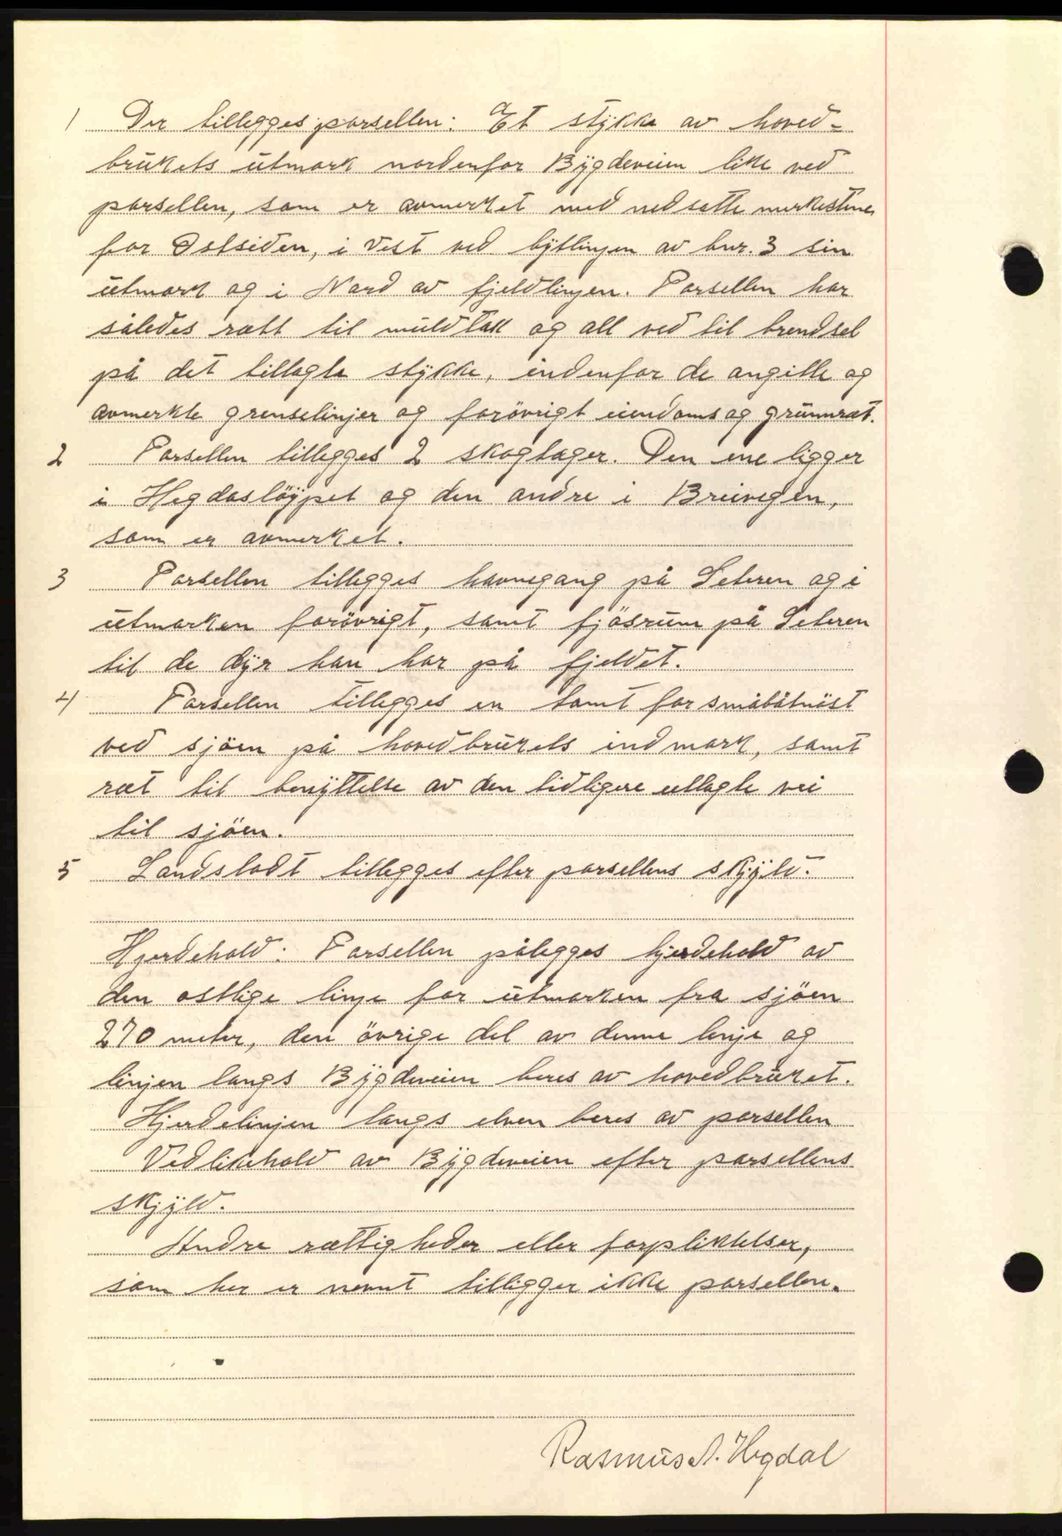 1 Der tillegges parsellen: Et stykke av hoved-
brukets utmark nordenfor Bygdeveien like ved
parsellen, som er avmerket med nedsatte merkestene
for Østsiden, i Vest ved bytlinjen av bnr. 3 sin
utmark og i Nord av fjeldlinjen. Parsellen har
således rætt til muldtak og all ved til brendsel
på det tillagte stykke, indenfor de angitte og
avmerkte grenselinjer og forövrigt eiendoms og grunnræt.
2 Parsellen tillegges 2 skogteger. Den ene ligger
i Hegdaslöypet og den andre i Breivegen,
som er avmerket.
3 Parsellen tillegges havnegang på Seteren og i
utmarken forövrigt, samt fjösrum på Seteren
til de dyr han har på fjeldet.
4 Parsellen tillegges en tomt for småbåtnöst
ved sjöen på hovedbrukets indmark, samt
ræt til benyttelse av den tidligere utlagte vei
til sjöen.
5 Landslodt tillegges efter parsellens skyld.
Hjerdehold: Parsellen pålegges hjerdehold av
den østlige linje for utmarken fra sjöen
270 meter, den övrige del av denne linje og
linjen langs Bygdeveien beres av hovedbruket.
Hjerdelinjen langs elven beres av parsellen
Vedlikehold av Bygdeveien efter parsellens
skyld.
Andre rættigheder eller forpliktelser,
som her er nevnt tilligger ikke parsellen.
Rasmus A. Hegdal